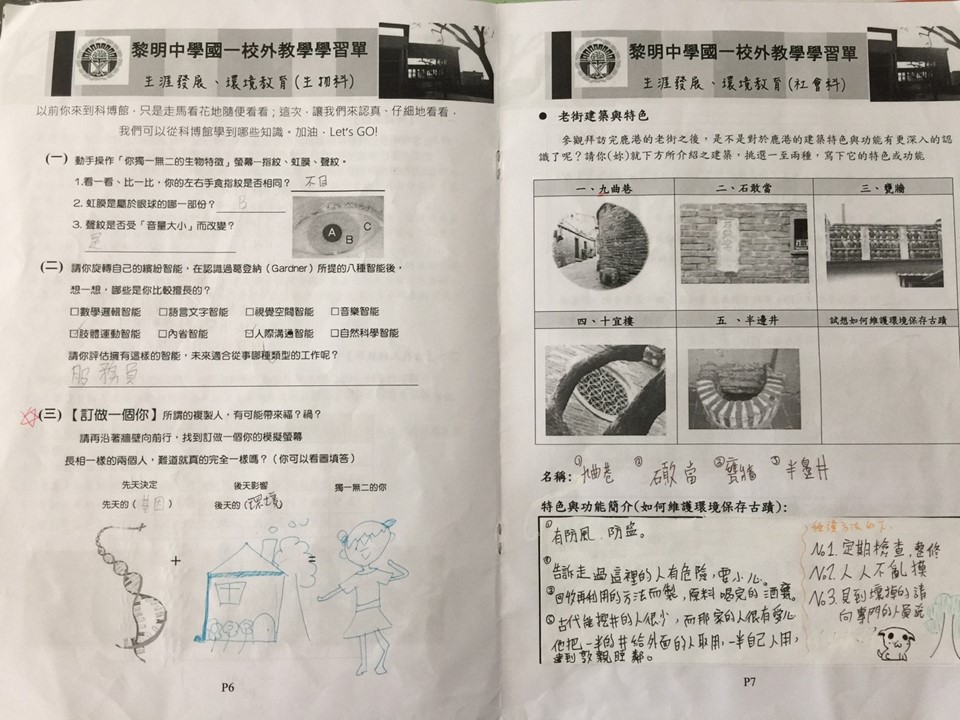 黎明中學國一校外教學學習單
生涯發展、環境教育(生物科)
以前你來到科博館，只是走馬看花地隨便看看；這次，讓我們來認真、仔細地看看，
我們可以從科博館學到哪些知識。加油，Let's GO!
(一) 動手操作「你獨一無二的生物特徵」螢幕—指紋、虹膜、聲紋。
1.看一看、比一比，你的左右手食指紋是否相同？ 不同
2. 虹膜是屬於眼球的哪一部份？ B
3. 聲紋是否受「音量大小」而改變？
是
A
B
C
(二) 請你旋轉自己的繽紛智能，在認識過葛登納（Gardner）所提的八種智能後，
想一想，哪些是你比較擅長的？
□數學邏輯智能 □語言文字智能 □視覺空間智能 □音樂智能
☑肢體運動智能 □內省智能 ☑人際溝通智能 □自然科學智能
請你評估擁有這樣的智能，未來適合從事哪種類型的工作呢？
服務員
(三)【訂做一個你】所謂的複製人，有可能帶來福？禍？
請再沿著牆壁向前行，找到訂做一個你的模擬螢幕
長相一樣的兩個人，難道就真的完全一樣嗎？（你可以看圖填答）
先天決定 後天影響 獨一無二的你
先天的（基因） 後天的（環境）
+ =
P6
黎明中學國一校外教學學習單
生涯發展、環境教育(社會科)
● 老街建築與特色
參觀拜訪完鹿港的老街之後，是不是對於鹿港的建築特色與功能有更深入的認
識了呢？請你(妳)就下方所介紹之建築，挑選一至兩種，寫下它的特色或功能
一、九曲巷 二、石敢當 三、甕牆
四、十宜樓 五、半邊井 試想如何維護環境保存古蹟
名稱：①九曲巷 ②石敢當 ③甕牆 ⑤半邊井
特色與功能簡介(如何維護環境保存古蹟)：
①有防風、防盜。
②告訴走過這裡的人有危險，要小心。
③回收再利用的方法而製，原料喝完的酒甕。
⑤古代能挖井的人很少，而那家的人很有愛心
他把一半的井給外面的人取用，一半自己人用，
達到敦親睦鄰。
No1. 定期檢查，整修
No2. 人人不亂摸
No3. 見到壞掉的請
向專門的人員說
P7